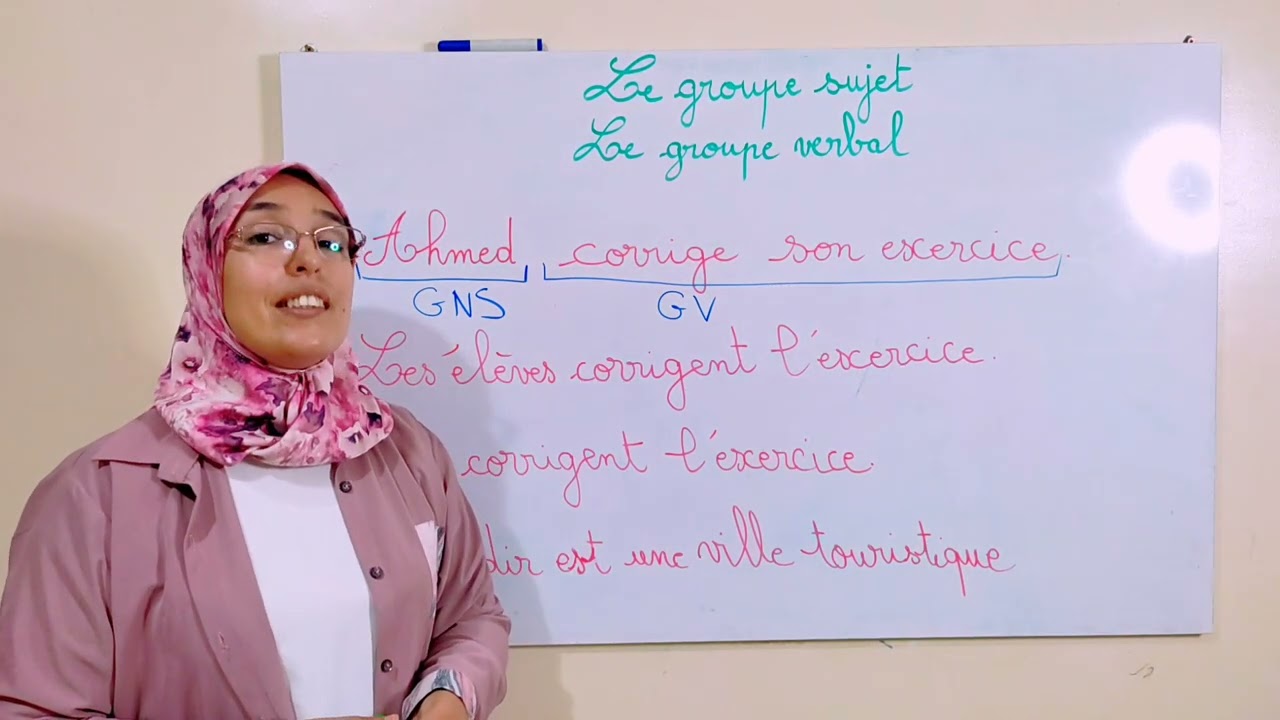 Le groupe sujet
Le groupe verbal
Ahmed corrige son exercice.
GNS GV
Les élèves corrigent l'éxercice.
corrigent l'éxercice.
est une ville touristique